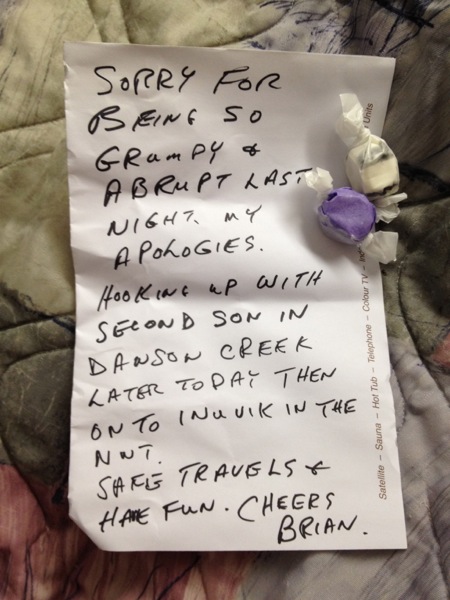 SORRY FOR
BEING SO
GRUMPY &
ABRUPT LAST
NIGHT. MY
APOLOGIES.
HOOKING UP WITH
SECOND SON IN
DANSON CREEK
LATER TODAY THEN
ON TO INUVIK IN THE
NNT.
SAFE TRAVELS &
HAVE FUN. CHEERS
BRIAN.
Satellite – Sauna – Hot Tub – Telephone – Colour TV –
Units